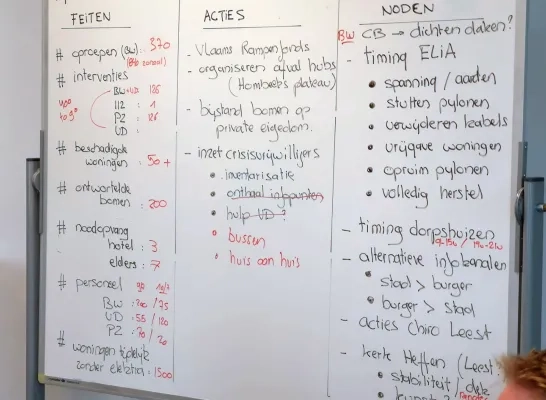 FEITEN
# oproepen (BW): 370
# interventies
BW+UD 186
112 : 1
PZ : 26
UD :
# beschadigde
woningen : 50+
# ontwortelde
bomen : 200
# noodopvang
hotel : 3
elders : 7
# personeel
BW : 200 / 75
UD : 55 / 120
PZ : 70 / 20
# woningen tijdelijk
zonder elektra : 1500
ACTIES
- Vlaams Rampenfonds
- organiseren afval hubs
(Hombeeks plateau)
- bijstand bomen op
private eigedom.
- inzet crisisvrijwilligers
• inventarisatie
• onthaal infopunten
• hulp UD ?
• bussen
• huis aan huis
NODEN
BW CB → dichten daken?
- timing ELiA
• spanning / aarden
• stutten pylonen
• verwijderen kabels
• vrijgave woningen
• opruim pylonen
• volledig herstel
- timing dorpshuizen
9-15u / 19u-21u
- alternatieve infokanalen
• stad > burger
• burger > stad
- acties Chiro Leest
- kerk Heffen (Leest?
• stabiliteit / dak